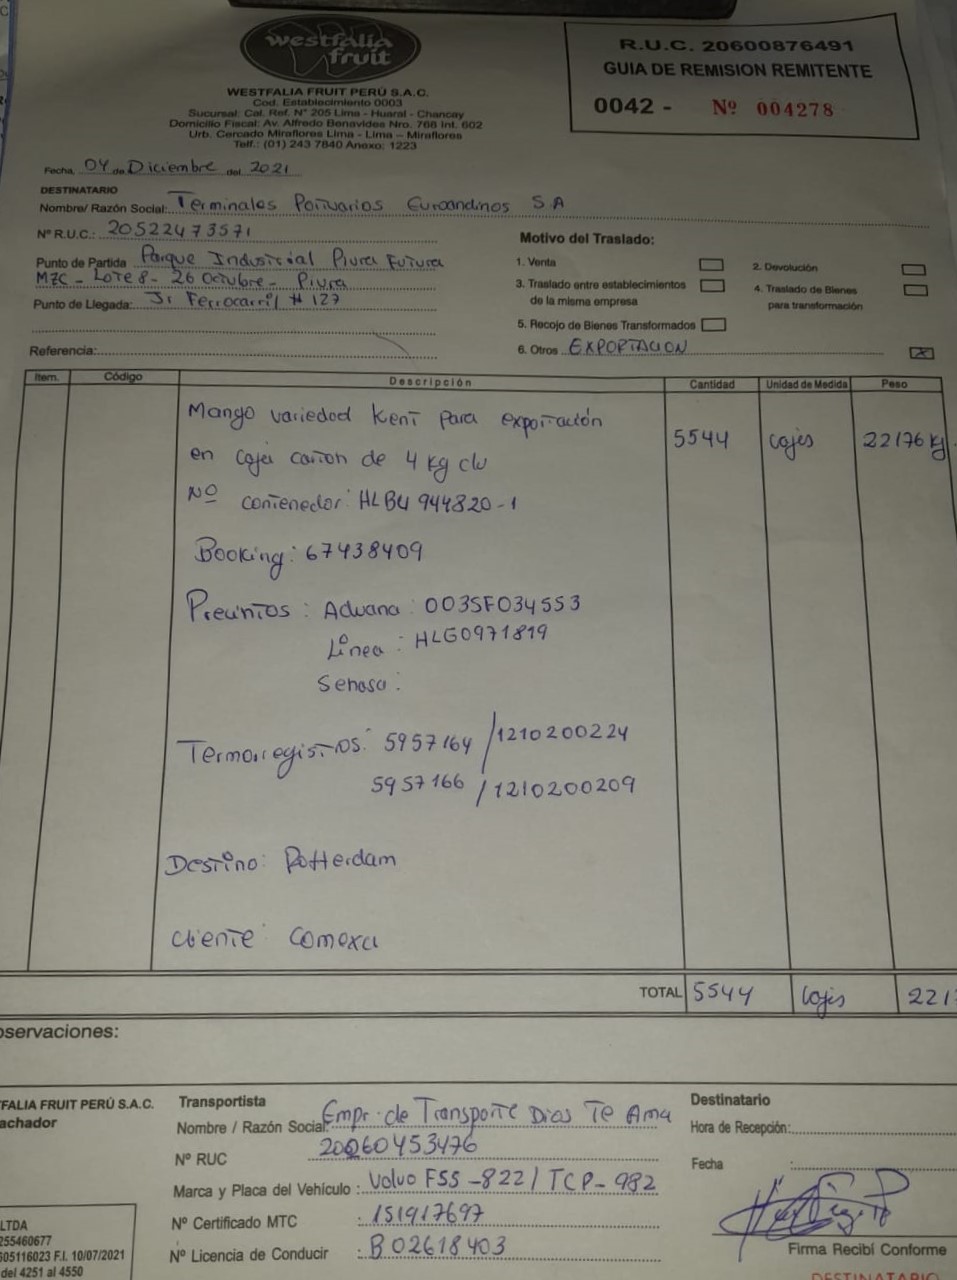 westfalia
fruit
WESTFALIA FRUIT PERÚ S.A.C.
Cod. Establecimiento 0003
Sucursal: Cal. Ref. N° 205 Lima - Huaral - Chancay
Domicilio Fiscal: Av. Alfredo Benavides Nro. 768 Int. 602
Urb. Cercado Miraflores Lima - Lima – Miraflores
Telf.: (01) 243 7840 Anexo: 1223
R.U.C. 20600876491
GUIA DE REMISION REMITENTE
0042 - Nº 004278
Fecha, 04 de Diciembre del 2021
DESTINATARIO
Nombre/ Razón Social: Terminales Portuarios Euroandinos S A
Nº R.U.C.: 20522473571
Punto de Partida Parque Industrial Piura Futura
MZC - Lote 8 - 26 Octubre - Piura
Punto de Llegada: Jr Ferrocarril # 127
Referencia:
Motivo del Traslado:
1. Venta
2. Devolución
3. Traslado entre establecimientos
de la misma empresa
4. Traslado de Bienes
para transformación
5. Recojo de Bienes Transformados
6. Otros EXPORTACION X
Item. Código Descripción Cantidad Unidad de Medida Peso
Mango variedad Kent para exportación 5544 cajas 22176 kg
en caja carton de 4 kg c/u
Nº contenedor: HLBU 944820-1
Booking: 67438409
Precintos: Aduana: 003SF034553
Línea: HLG0971819
Senasa:
Termorregistros: 5957164 / 1210200224
5957166 / 1210200209
Destino: Rotterdam
cliente: Comexa
TOTAL 5544 cajas 221
bservaciones:
TFALIA FRUIT PERÚ S.A.C.
achador
Transportista
Nombre / Razón Social: Empr. de Transporte Dios Te Ama
Nº RUC 20060453476
Marca y Placa del Vehículo: Volvo F5S-822 / TCP-982
Nº Certificado MTC: 151917697
Nº Licencia de Conducir: B02618403
Destinatario
Hora de Recepción:
Fecha :
Firma Recibí Conforme
DESTINATARIO
LTDA
255460677
605116023 F.I. 10/07/2021
del 4251 al 4550